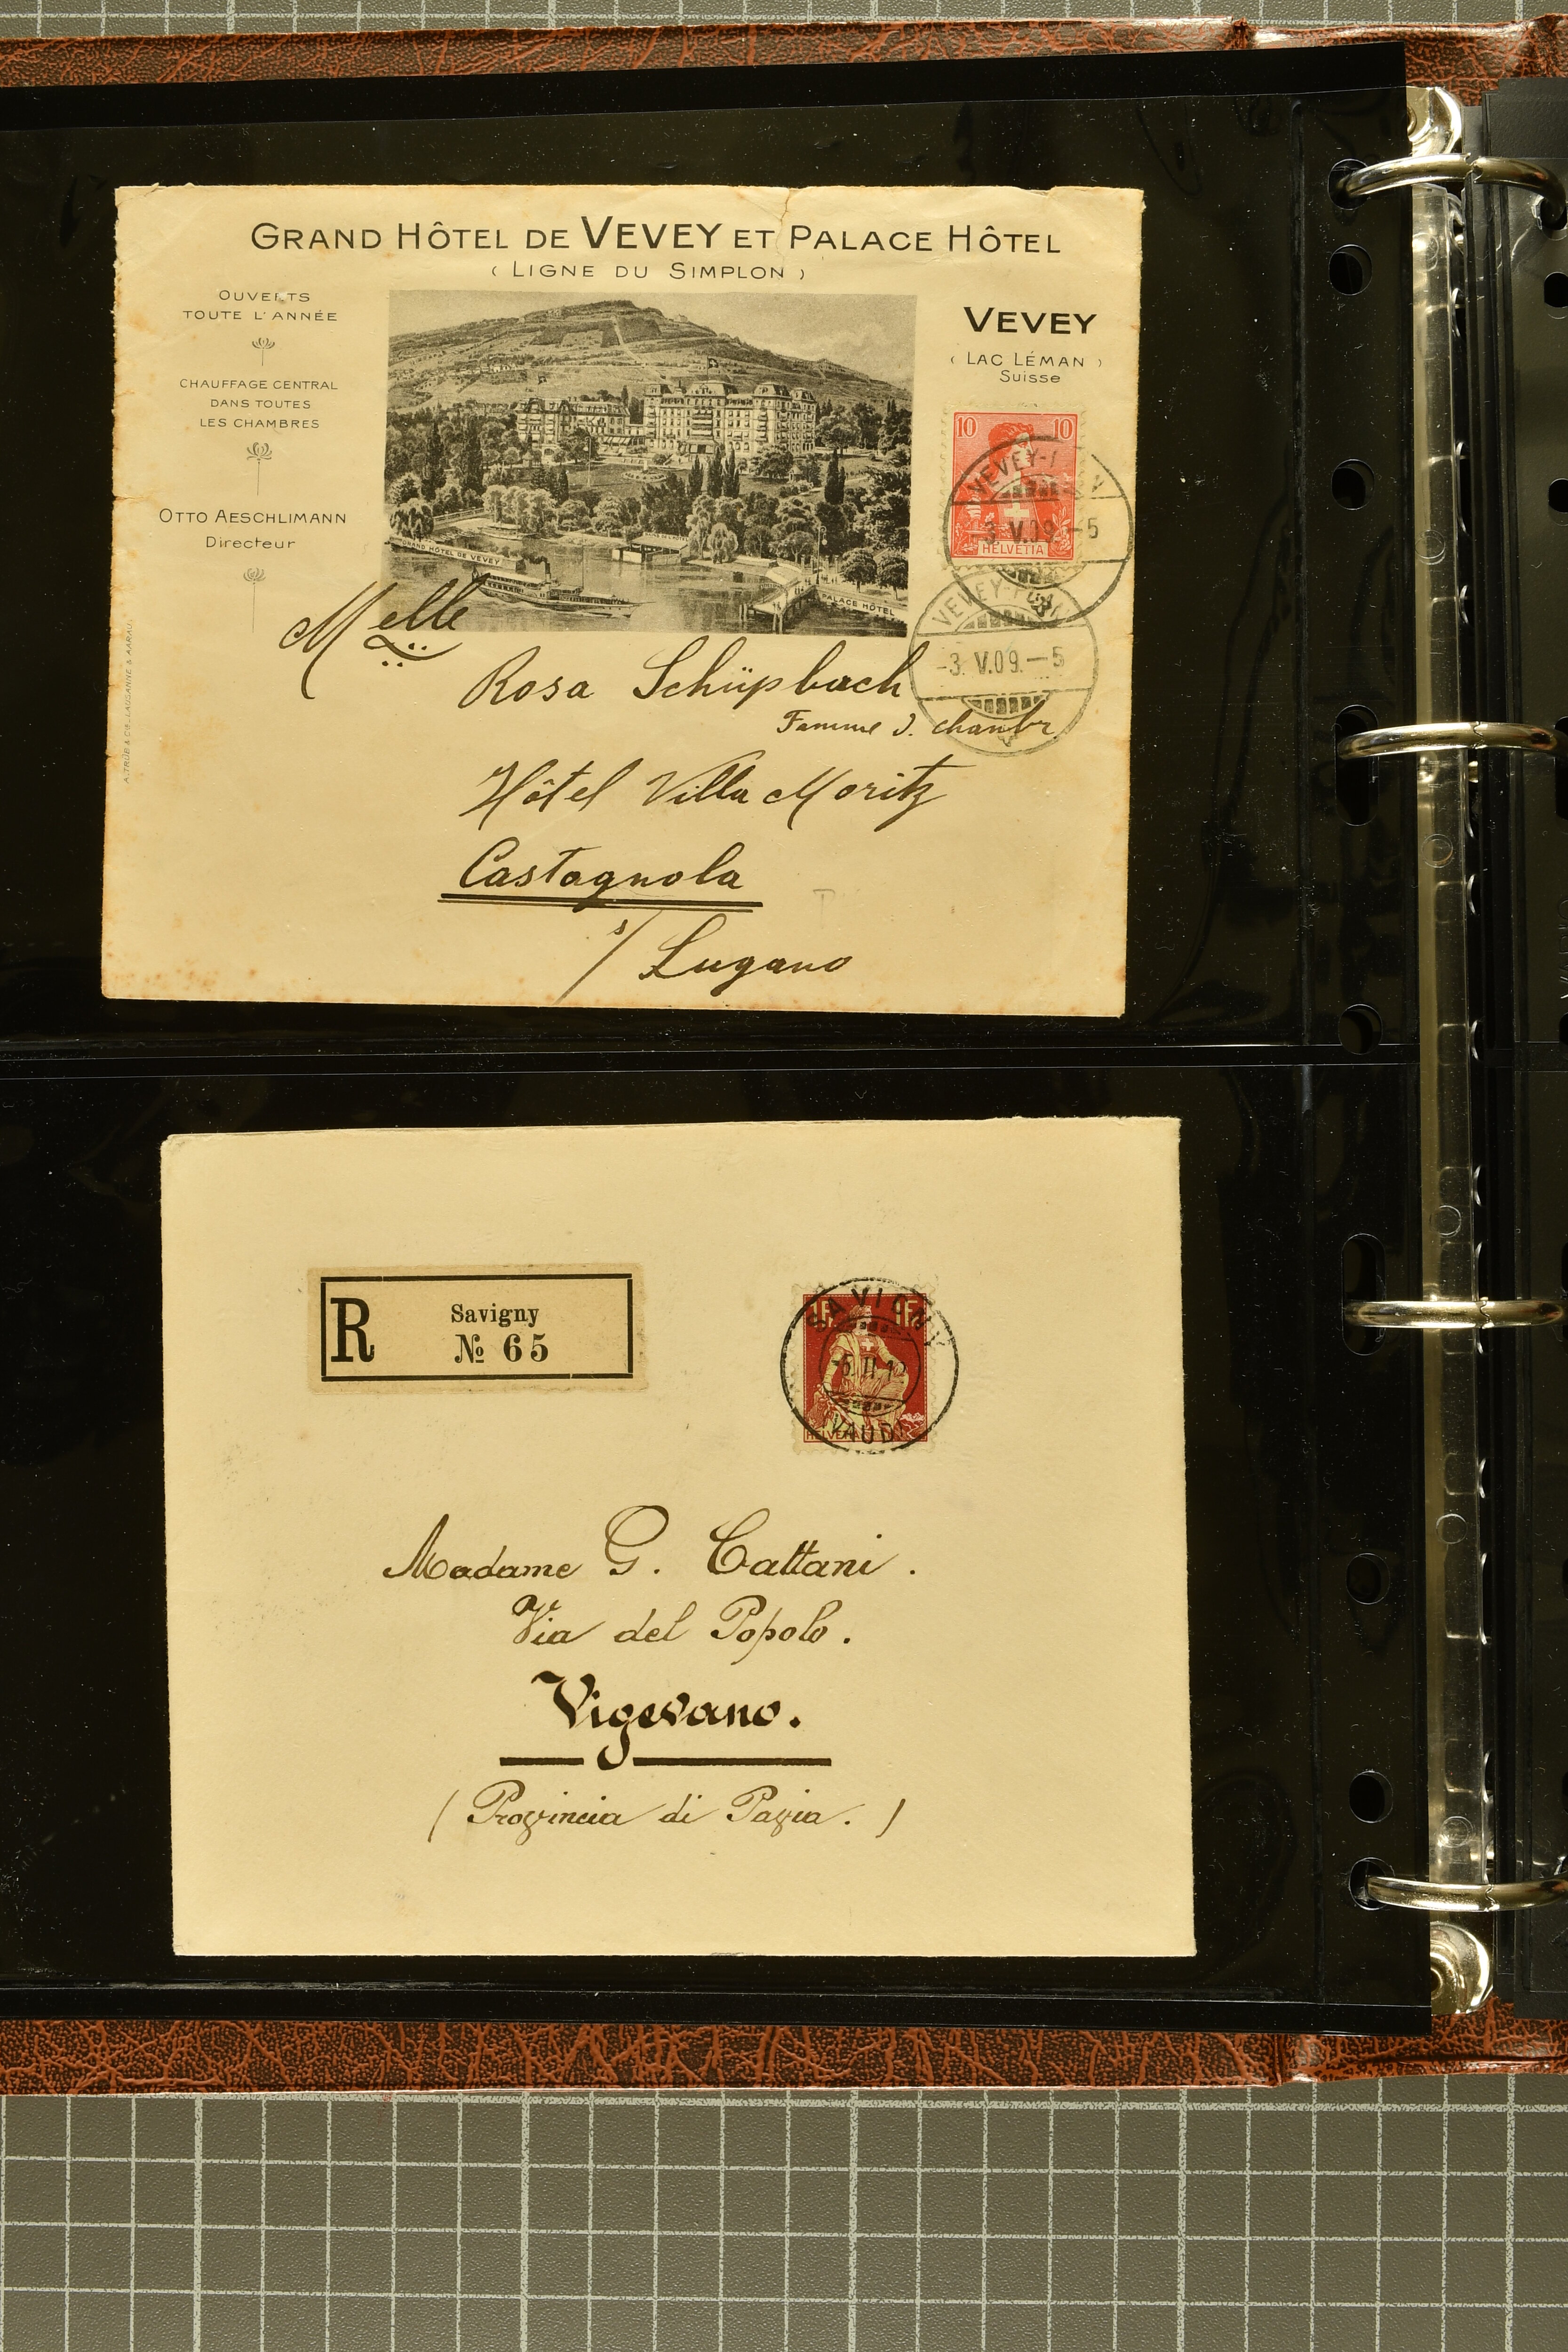 GRAND HÔTEL DE VEVEY ET PALACE HÔTEL
( LIGNE DU SIMPLON )
OUVERTS
TOUTE L'ANNÉE
CHAUFFAGE CENTRAL
DANS TOUTES
LES CHAMBRES
OTTO AESCHLIMANN
Directeur
A. TRÜB & CO. LAUSANNE & AARAU.
GRAND HÔTEL DE VEVEY
PALACE HÔTEL
VEVEY
( LAC LÉMAN )
Suisse
10 10
HELVETIA
VEVEY
-3.V.09.-5
VEVEY
-3.V.09.-5
Melle
Rosa Schüpbach
Femme d. chambr
Hôtel Villa Moritz
Castagnola
s/ Lugano
R
Savigny
№ 65
1F. 1F.
HELVETIA
SAVIGNY
VAUD
Madame G. Cattani.
Via del Popolo.
Vigevano.
(Provincia di Pavia.)